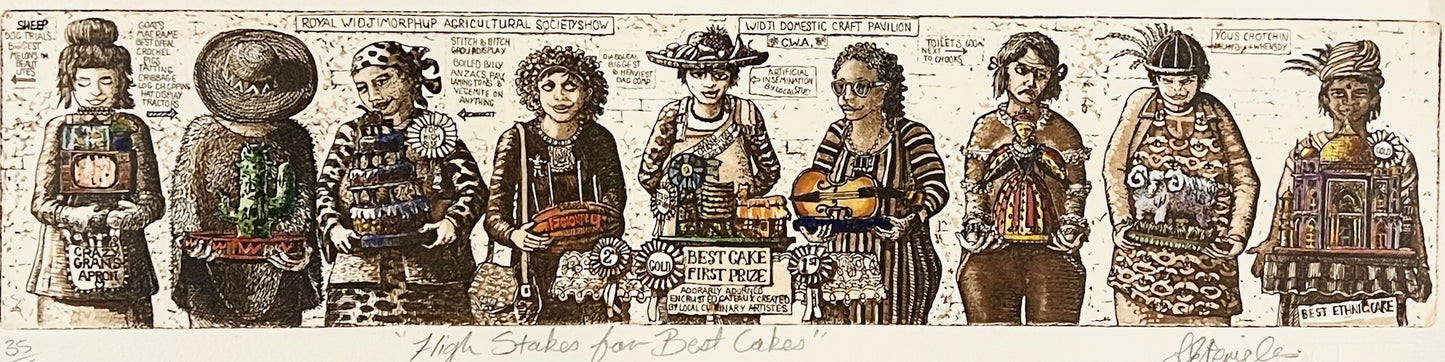 SHEEP
DOG TRIALS
BIGGEST
MELONS IN
BEAUT
UTES
GOATS
MACRAME
BEST OFFAL
CROCHET
PIGS
TATTING
CRIBBAGE
LOG CHOPPING
HAT DISPLAY
TRACTORS
ROYAL WIDJIMORPHUP AGRICULTURAL SOCIETY SHOW
STITCH & BITCH
GROUP DISPLAY
BOILED BILLY
ANZACS, PAV
LAMINGTONS &
VEGEMITE ON
ANYTHING
WIDJI DOMESTIC CRAFT PAVILION
C.W.A.
DIABOLICAL
BIGGEST
& HEAVIEST
DAG COMP
ARTIFICIAL
INSEMINATION
BY LOCAL STUD
TOILETS 600M
NEXT
TO CHOOKS
YOUS CROTCHIN
WHENSDY
CRAZY
GRANS
APRON
TOP
GOLD
2nd
GOLD
BEST CAKE
FIRST PRIZE
ADORABLY ADORNED
ENCRUSTED GATEAUX CREATED
BY LOCAL CULINARY ARTISTES
1st
GOLD
BEST ETHNIC CAKE
35
"High Stakes for Best Cakes"